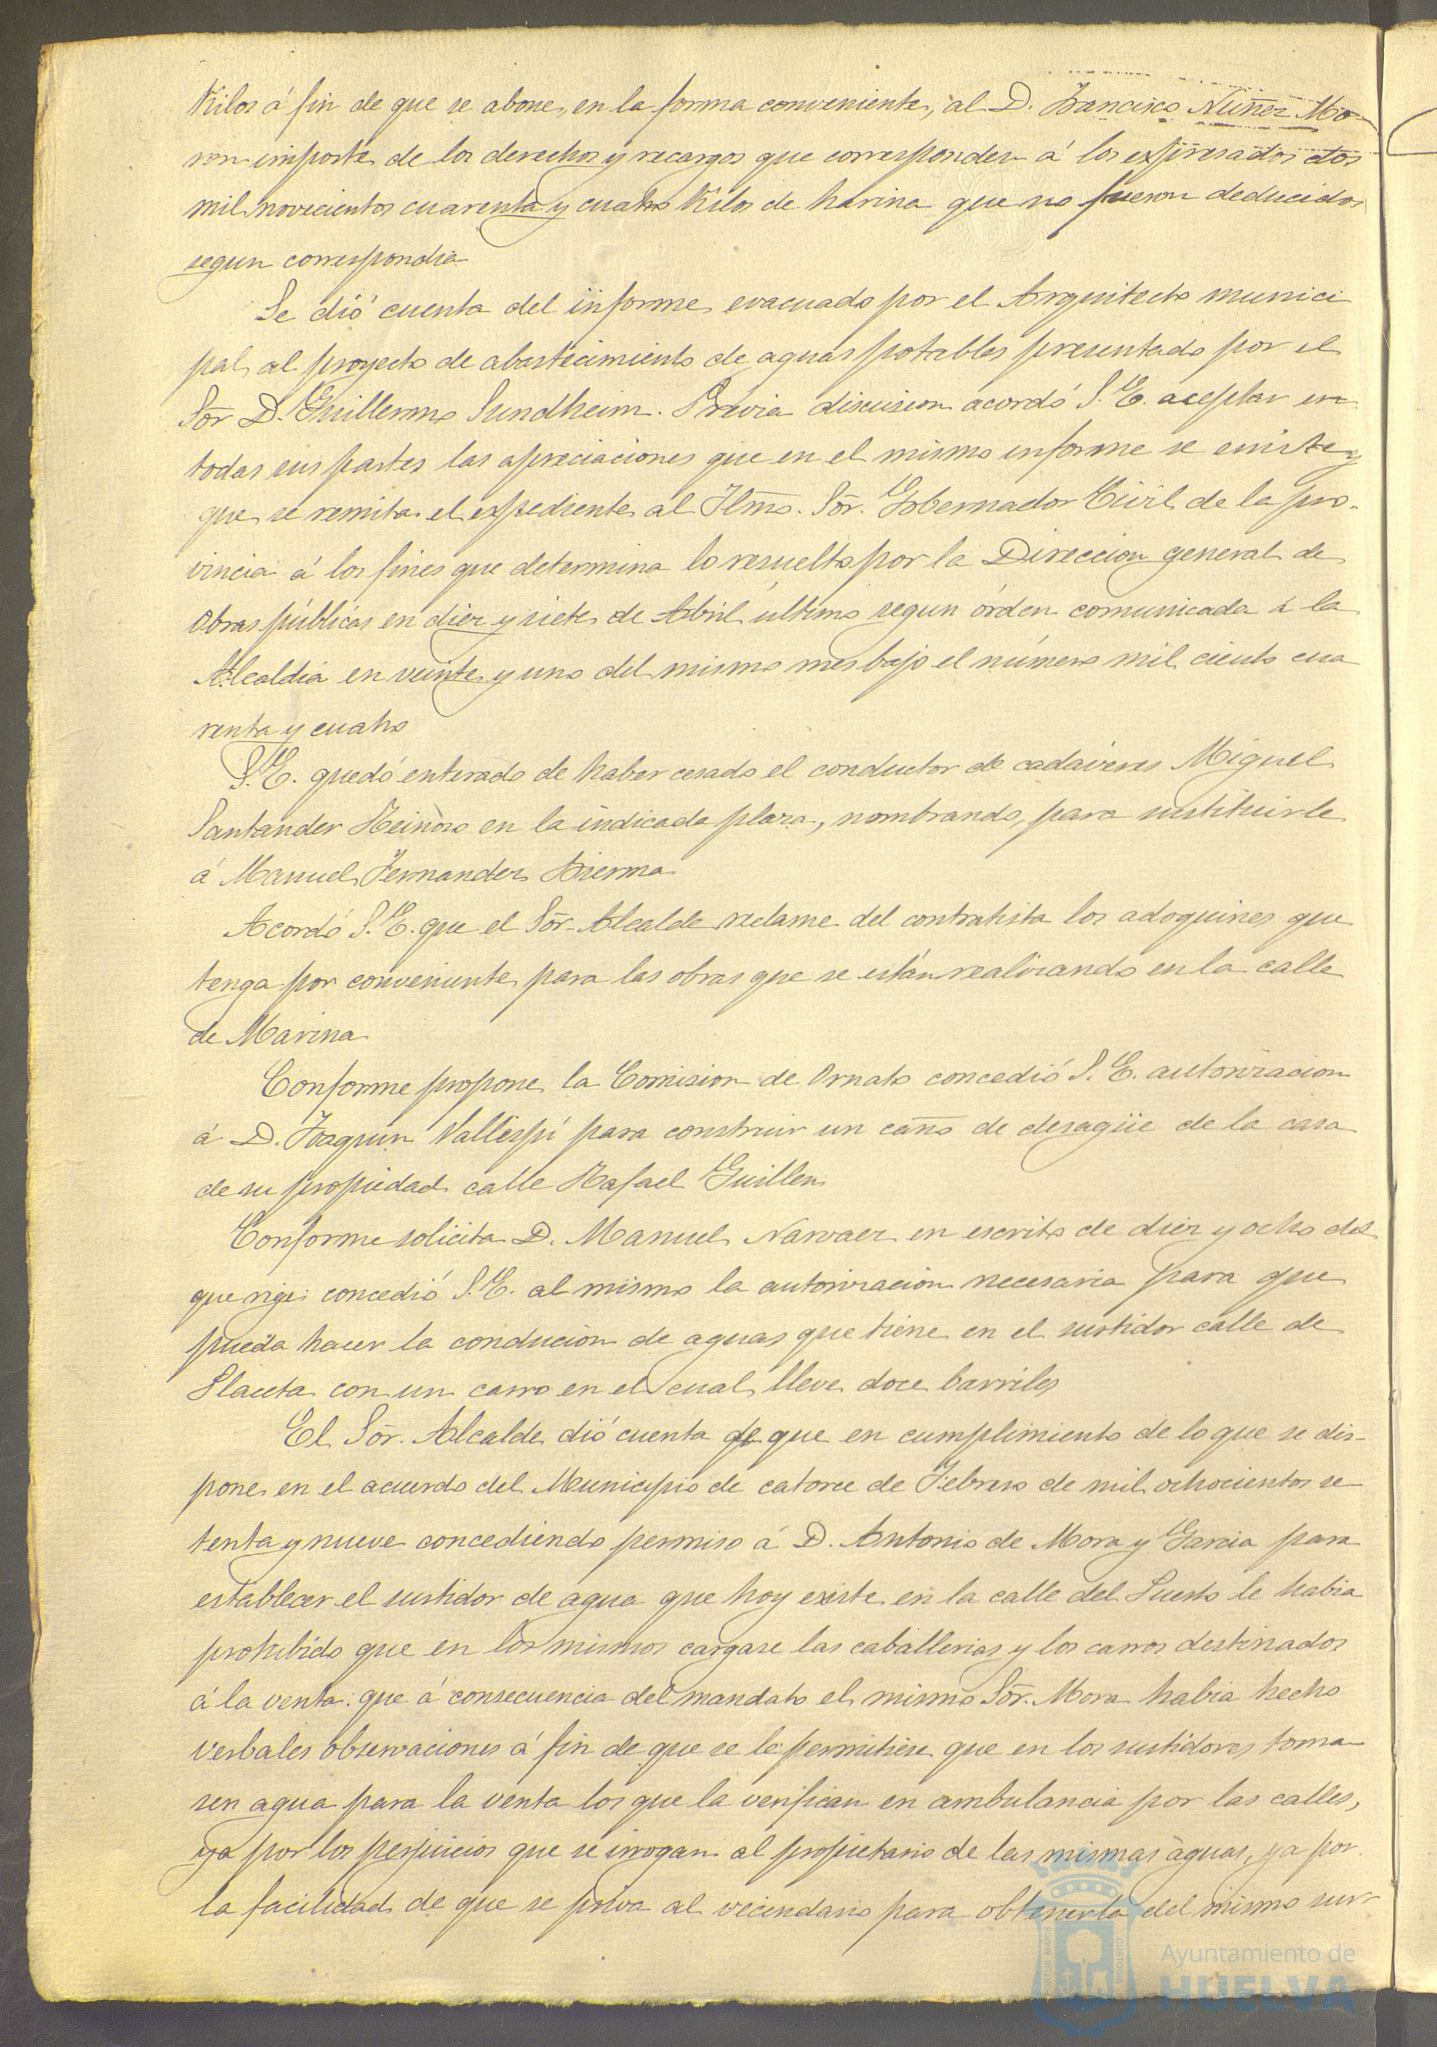 Kilos á fin de que se abone, en la forma conveniente, al D. Francisco Nuñez Mo-
ron importe de los derechos y recargos que corresponden á los expresados dos
mil novecientos cuarenta y cuatro Kilos de harina que no fueron deducidos
segun correspondia
Se dió cuenta del informe evacuado por el Arquitecto munici
pal al proyecto de abastecimiento de aguas potables presentado por el
Sõr D. Guillermo Sundheim. Previa discusion acordó S. E. aceptar en
todas sus partes las apreciaciones que en el mismo informe se emite y
que se remita el expediente al Ilmo. Sõr. Gobernador Civil de la pro-
vincia á los fines que determina lo resuelto por la Direccion general de
Obras públicas en diez y siete de Abril último segun órden comunicada á la
Alcaldía en veinte y uno del mismo mes bajo el número mil ciento cua
renta y cuatro
S. E. quedó enterado de haber cesado el conductor de cadáveres Miguel
Santander Reinoso en la indicada plaza, nombrando para sustituirle
á Manuel Fernandez Bierma
Acordó S. E. que el Sõr. Alcalde reclame del contratista los adoquines que
tenga por conveniente para las obras que se están realizando en la calle
de Marina
Conforme propone la Comision de Ornato concedió S. E. autorizacion
á D. Joaquin Vallespí para construir un caño de desagüe de la casa
de su propiedad calle Rafael Guillen
Conforme solicita D. Manuel Narvaez en escrito de diez y ocho del
que rige concedió S. E. al mismo la autorizacion necesaria para que
pueda hacer la conducion de aguas que tiene en el surtidor calle de
Placeta con un carro en el cual lleve doce barriles
El Sõr. Alcalde dió cuenta de que en cumplimiento de lo que se dis-
pone en el acuerdo del Municipio de catorce de Febrero de mil ochocientos se
tenta y nueve concediendo permiso á D. Antonio de Mora y Garcia para
establecer el surtidor de agua que hoy existe en la calle del Puerto le habia
prohibido que en los mismos cargase las caballerias y los carros destinados
á la venta: que á consecuencia del mandato el mismo Sõr. Mora habia hecho
verbales observaciones á fin de que se le permitiese que en los surtidores toma
sen agua para la venta los que la verifican en ambulancia por las calles,
ya por los perjuicios que se irrogan al propietario de las mismas aguas, ya por
la facilidad de que se priva al vecindario para obtenerla del mismo sur-
Ayuntamiento de
HUELVA